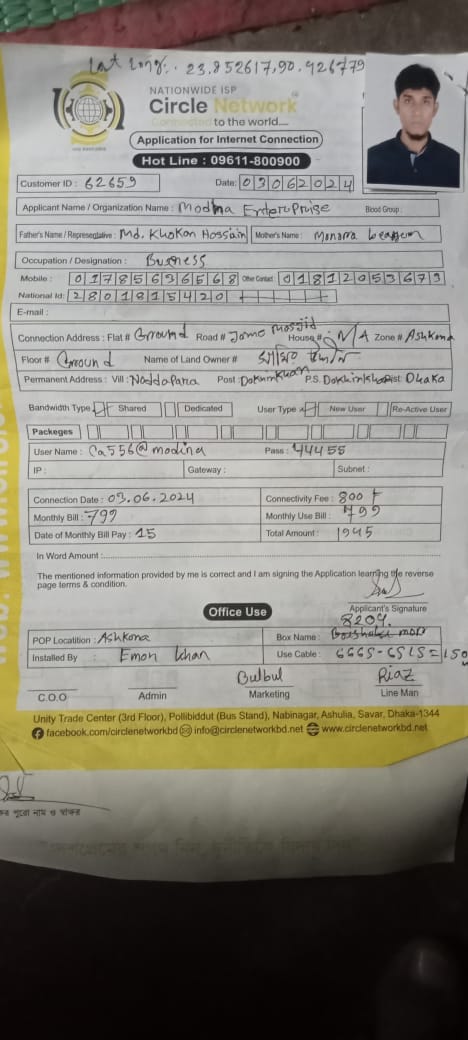 Lat Long: 23.852617,90.426779
NATIONWIDE ISP
Circle Network
Connected to the world....
Application for Internet Connection
Hot Line : 09611-800900
Customer ID : 62659 Date: 03062024
Applicant Name / Organization Name : Modina Enterprise Blood Group :
Father's Name / Representative : Md. Khokan Hossain Mother's Name : Monorra Beagom
Occupation / Designation : Business
Mobile : 01785636568 Other Contact 01812053673
National Id: 2801815420
E-mail :
Connection Address : Flat # Ground Road # Jome mosjid House # N/A Zone # Ashkona
Floor # Ground Name of Land Owner #
Permanent Address : Vill : Noddapara Post : Dokhinkhan P.S. Dokhinkhan Dist: Dhaka
Bandwidth Type Shared Dedicated User Type New User Re-Active User
Packeges
User Name : Ca556@modina Pass : 44455
IP : Gateway : Subnet :
Connection Date : 03.06.2024 Connectivity Fee : 800
Monthly Bill : 799 Monthly Use Bill : 799
Date of Monthly Bill Pay : 15 Total Amount : 1945
In Word Amount :
The mentioned information provided by me is correct and I am signing the Application learning the reverse
page terms & condition.
Applicant's Signature
Office Use
8209
POP Locatition : Ashkona Box Name :
Installed By : Emon Khan Use Cable : 6665-6515=150
Bulbul Riaz
C.O.O Admin Marketing Line Man
Unity Trade Center (3rd Floor), Pollibiddut (Bus Stand), Nabinagar, Ashulia, Savar, Dhaka-1344
facebook.com/circlenetworkbd info@circlenetworkbd.net www.circlenetworkbd.net
পুরো নাম ও স্বাক্ষর